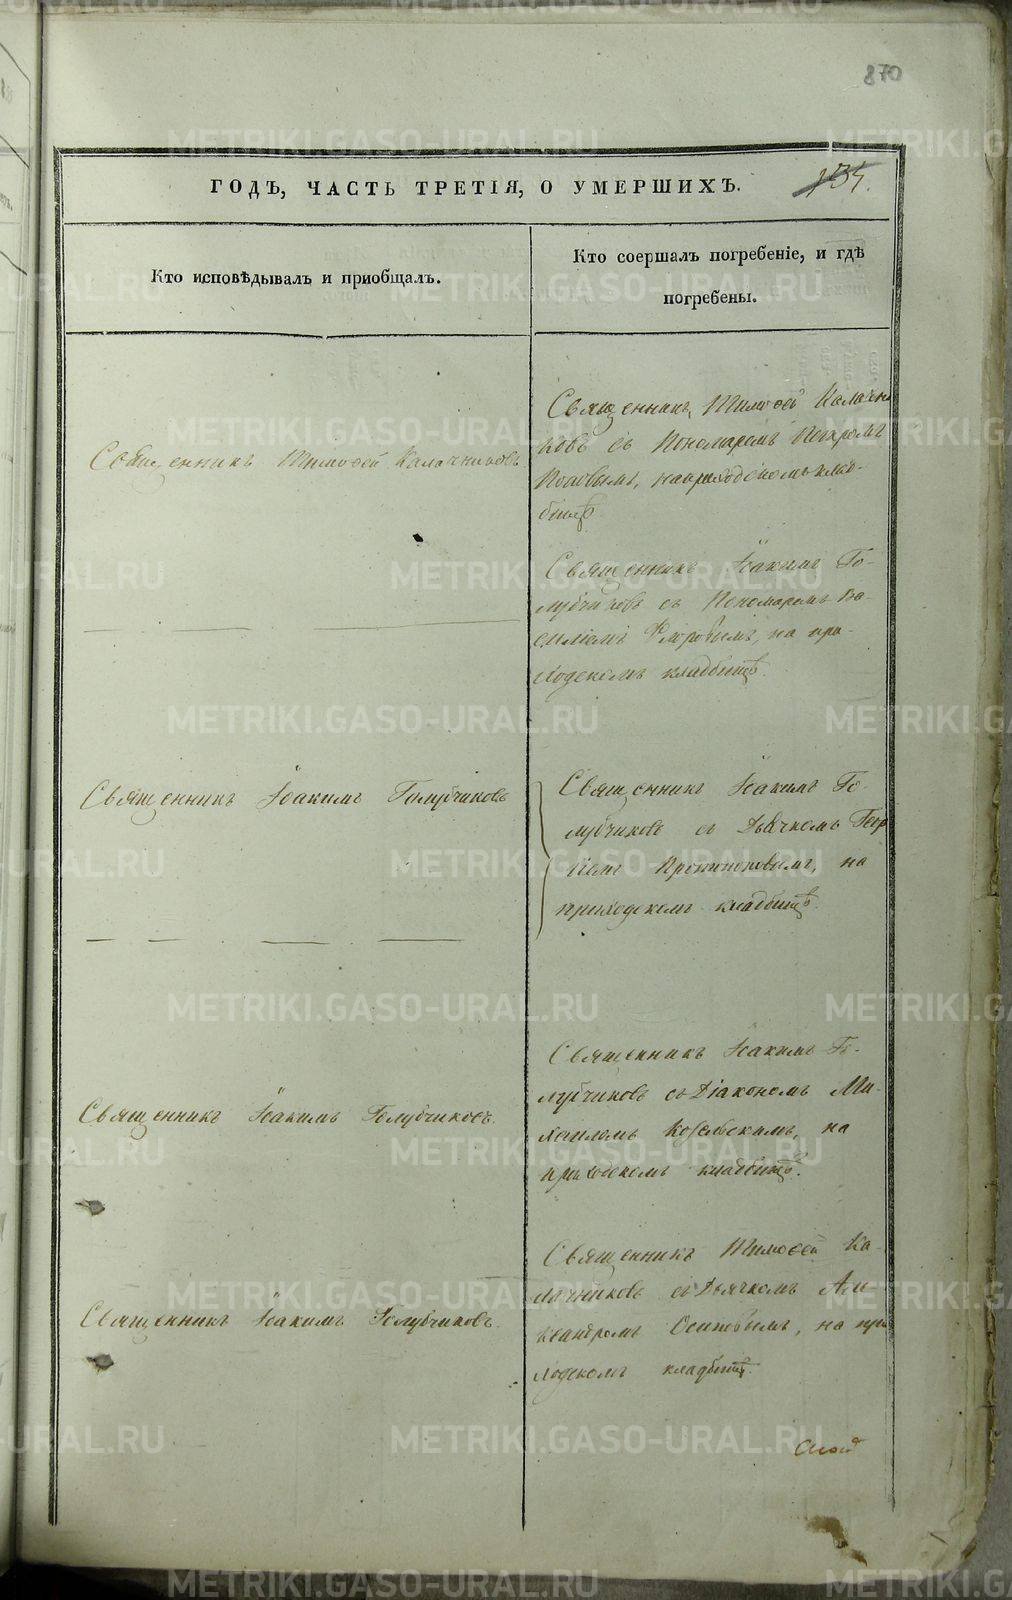 870
ГОДЪ, ЧАСТЬ ТРЕТІЯ, О УМЕРШИХЪ.
134.
Кто исповѣдывалъ и приобщалъ.
Кто соершалъ погребеніе, и гдѣ
погребены.
Священникъ Тимоѳей Калачниковъ
Священникъ Тимоѳей Калачни
ковъ съ Пономаремъ Петромъ
Поповымъ, на приходскомъ клад-
бищѣ
Священникъ Іоакимъ Го-
лубчиковъ съ Пономаремъ Ва-
силіемъ Флоровымъ, на при-
ходскомъ кладбищѣ.
Священникъ Іоакимъ Голубчиковъ
Священникъ Іоакимъ Го-
лубчиковъ съ Дьячкомъ Геор
гіемъ на
приходскомъ кладбищѣ.
Священникъ Іоакимъ Голубчиковъ.
Священникъ Іоакимъ Го-
лубчиковъ съ Діакономъ Ми-
хаиломъ Козельскимъ, на
приходскомъ кладбищѣ.
Священникъ Іоакимъ Голубчиковъ.
Священникъ Тимоѳей Ка-
лачниковъ съ Дьячкомъ Але
ксандромъ Осиповымъ, на при
ходскомъ кладбищѣ.
METRIKI.GASO-URAL.RU